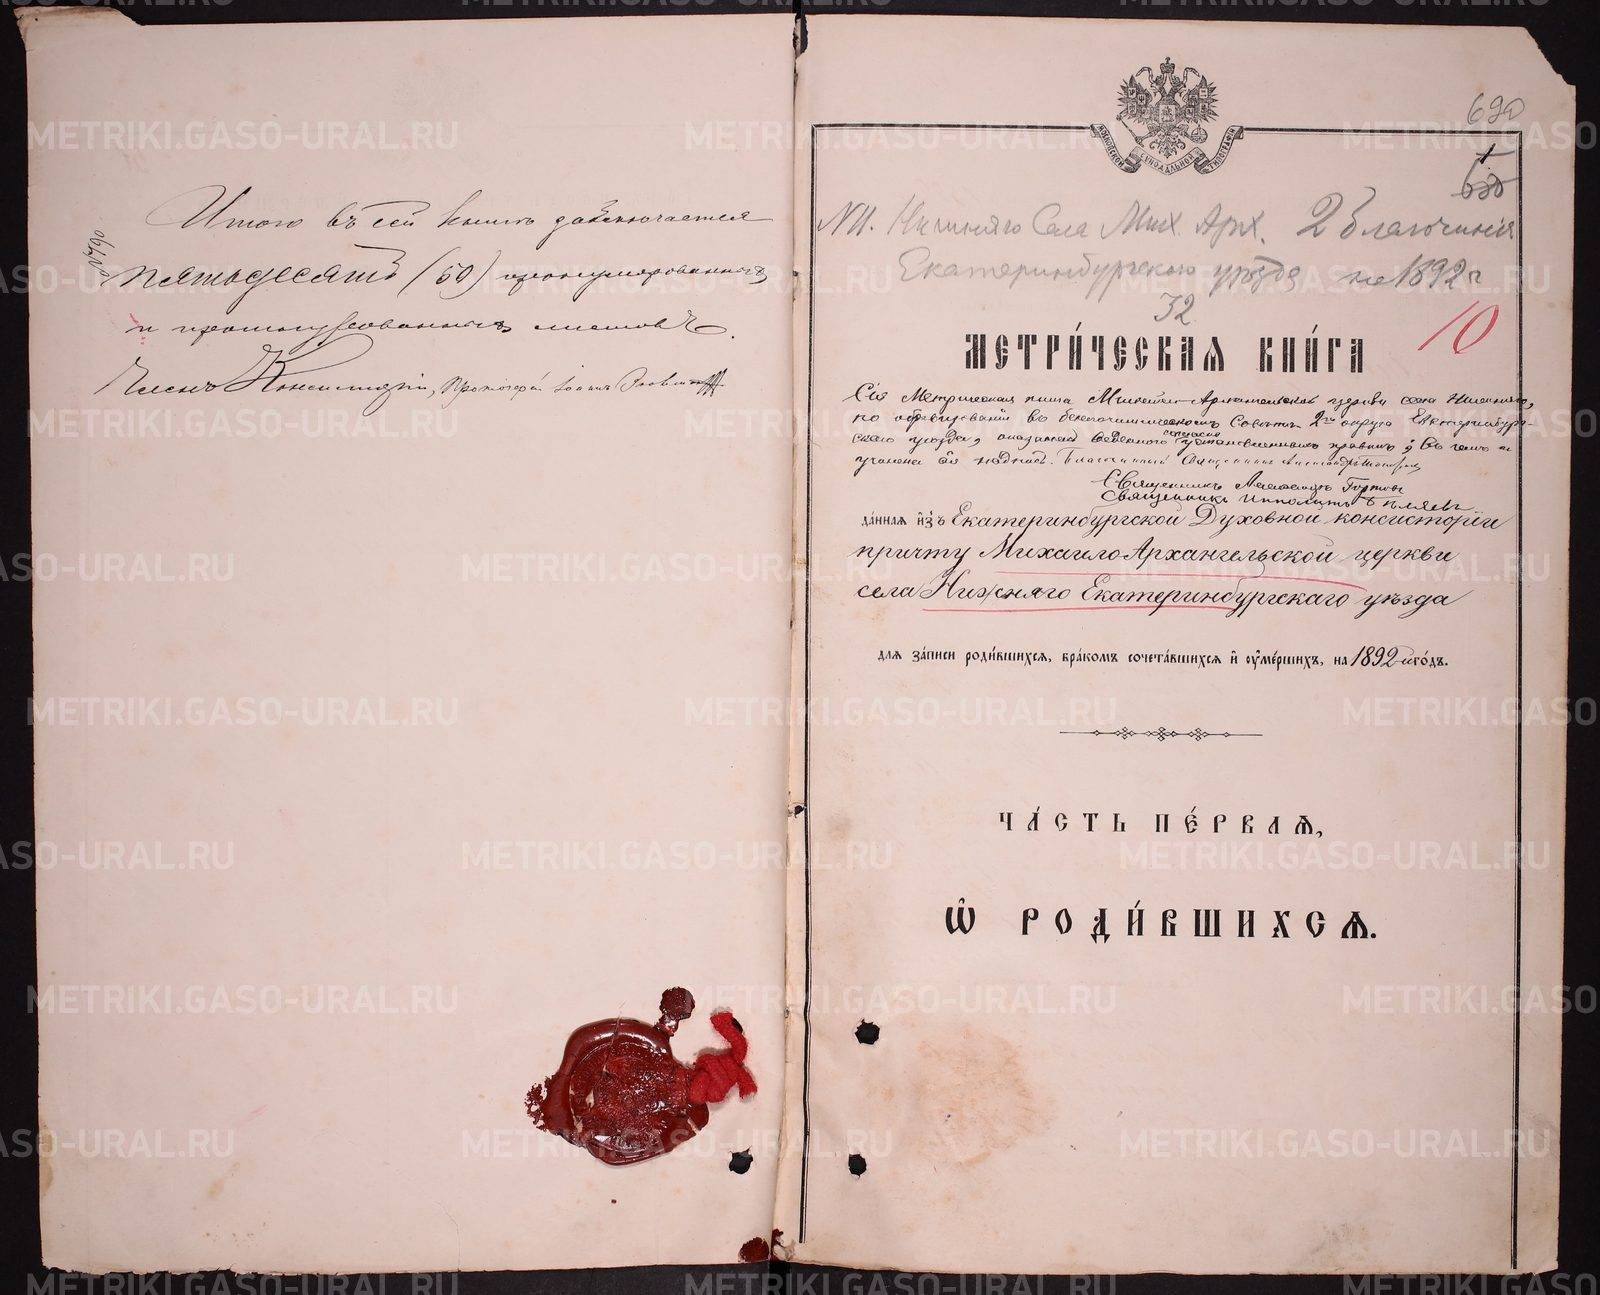 Итого въ сей книгѣ заключается
пятьдесятъ (50) пронумерованныхъ
и прошнурованныхъ листовъ.
Членъ Консисторіи, Протоіерей Іоаннъ
МОСКОВСКОЙ СѴНОДАЛЬНОЙ ТИПОГРАФІИ
690
Нижняго Села Мих. Арх. 2 благочинія
Екатеринбургскаго уѣзда на 1892 г
32
10
МЕТРИ́ЧЕСКАѦ КНИ́ГА
Сія Метрическая книга Михаило-Архангельской церкви села Нижняго,
по освидѣтельствованіи въ благочинническомъ Совѣтѣ 2го округа Екатеринбург-
скаго уѣзда, оказалась веденною согласно установленнымъ правиламъ; въ чемъ и
учинена сія надпись. Благочинный Священникъ Александръ
Священникъ
Священникъ Ипполитъ
да́ннаѧ и҆зъ Екатеринбургской Духовной консисторіи
причту Михаило Архангельской церкви
села Нижняго Екатеринбургскаго уѣзда
длѧ за́писи роди́вшихсѧ, бра́комъ сочета́вшихсѧ и҆ ᲂу҆ме́ршихъ, на 1892 й го́дъ.
ЧА́СТЬ ПЕ́РВАѦ,
Ѽ РОДИ́ВШИХСѦ.
METRIKI.GASO-URAL.RU